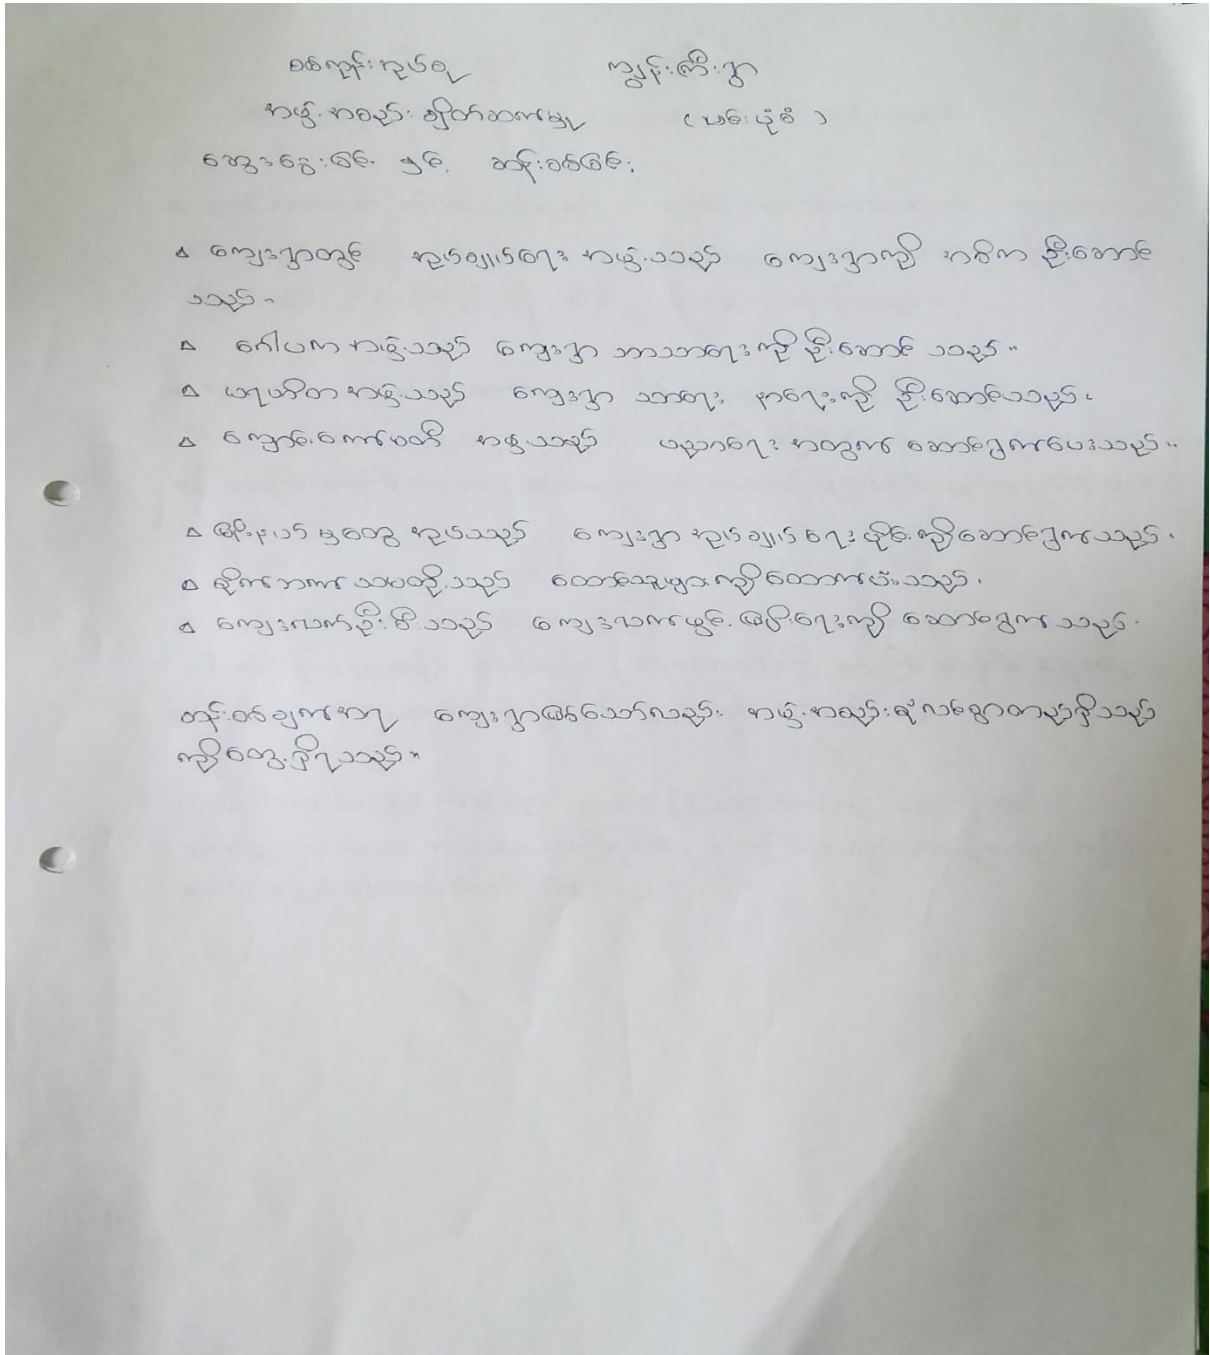 စစ်ကုန်းအုပ်စု ကျွန်းကြီးရွာ
အဖွဲ့အစည်းချိတ်ဆက်မှု (ပင်းပုံစံ)
ဆွေးနွေးခြင်း နှင့် ဆန်းစစ်ခြင်း
ကျေးရွာတွင် အုပ်ချုပ်ရေး အဖွဲ့သည် ကျေးရွာကို အဓိက ဦးဆောင်
သည်။
ဂေါပက အဖွဲ့သည် ကျေးရွာ ဘာသာရေးကို ဦးဆောင် သည်။
ပရဟိတ အဖွဲ့သည် ကျေးရွာ သာရေး နာရေးကို ဦးဆောင်သည်။
ကျောင်းကော်မတီ အဖွဲ့သည် ပညာရေး အတွက် ဆောင်ရွက်ပေးသည်။
မြို့နယ် မှတွေ့ အုပ်သည် ကျေးရွာ အုပ်ချုပ် ရေး ပိုင်းကိုဆောင်ရွက်သည်။
စိုက်ဘဏ် သမတို့သည် တောင်သူများကိုထောက်ပံ့သည်။
ကျေးလက်ဦးစီးသည် ကျေးလက်ဖွင့်ဖြိုးရေးကို ဆောင်ရွက် သည်။
တန်းစစ်ချက်အရ ကျေးရွာဖြစ်သော်လည်း အဖွဲ့အစည်းစုံလင်စွာတည်ရှိသည်
ကိုတွေ့ရှိရသည်။